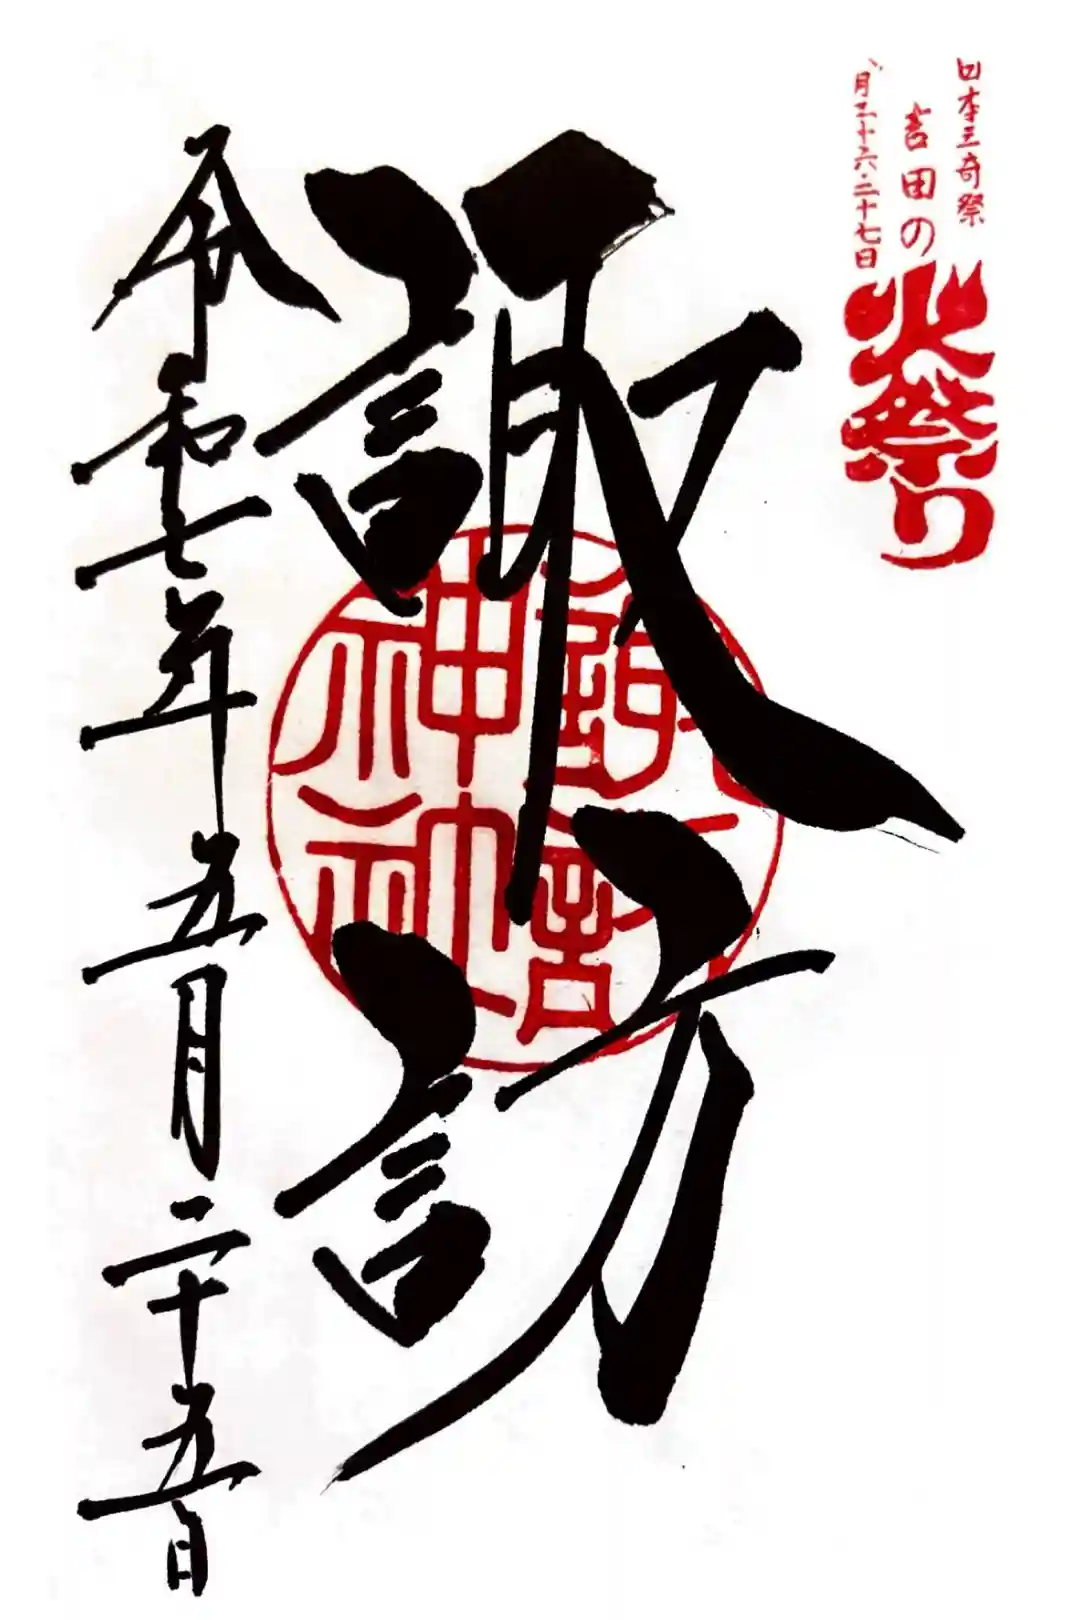 日本三奇祭
吉田の
火祭り
八月二十六・二十七日
諏訪
諏訪
神社
令和七年五月二十五日